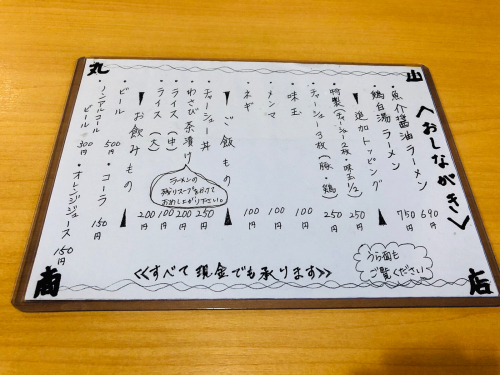 丸
山
〈おしながき〉
・魚介醤油ラーメン 690円
・鶏白湯ラーメン 750円
追加トッピング
・特製(チャーシュー2枚・味玉1/2) 250円
・チャーシュー3枚(豚・鶏) 250円
・味玉 100円
・メンマ 100円
・ネギ 100円
ご飯もの
・チャーシュー丼 250円
・わさび茶漬け 200円
・ライス(中) 100円
・ライス(大) 200円
ラーメンの
残りスープをかけて
おめしあがり下さい。
お飲みもの
・ビール 500円
・コーラ 150円
・ノンアルコール
ビール 300円
・オレンジジュース 150円
うら面も
ご覧ください
≪すべて現金でも承ります≫
商
店